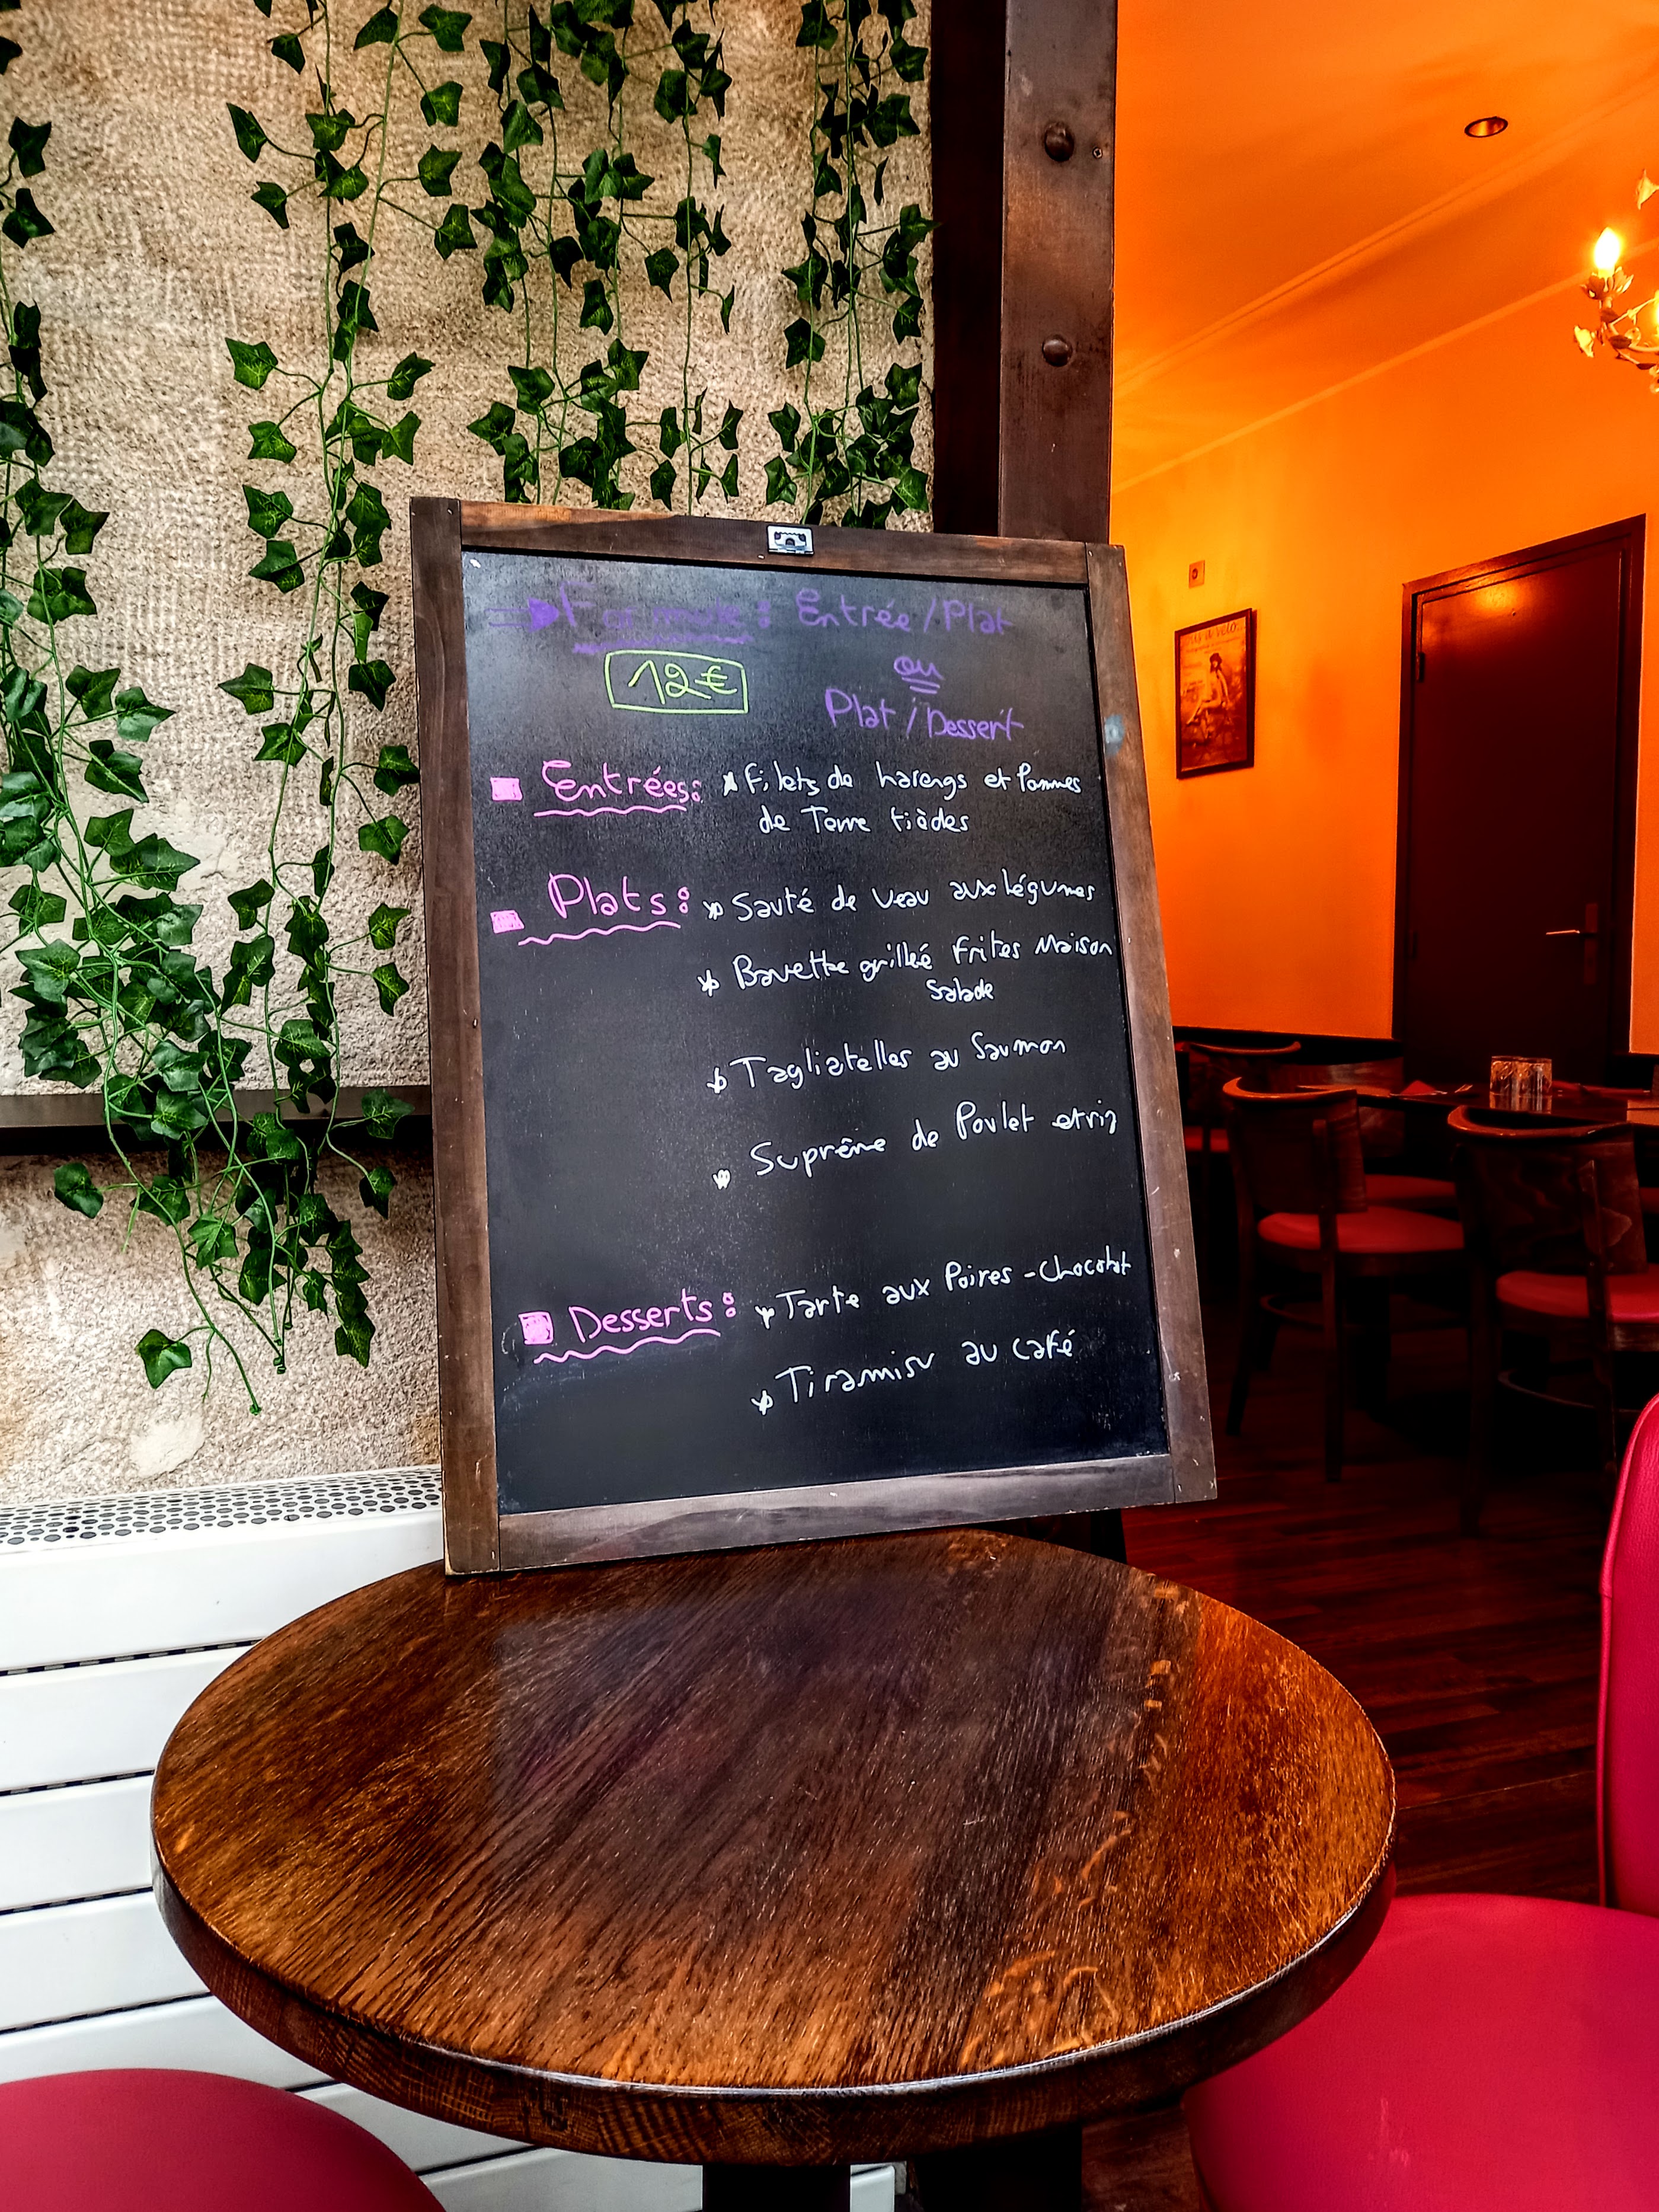 Formule : Entrée / Plat
12€
ou
Plat / Dessert
Entrées : * Filets de harengs et Pommes
de Terre tièdes
Plats : * Sauté de veau aux légumes
* Bavette grillée Frites Maison
Salade
* Tagliatelles au Saumon
* Suprême de Poulet et riz
Desserts : * Tarte aux Poires - Chocolat
* Tiramisu au café